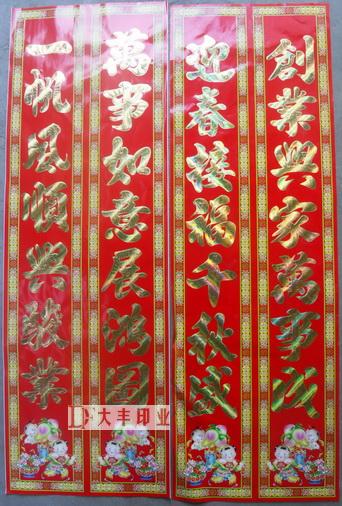 創業興家萬事成
迎春接福千秋盛
萬事如意展鴻圖
一帆風順興駿業
大丰印业